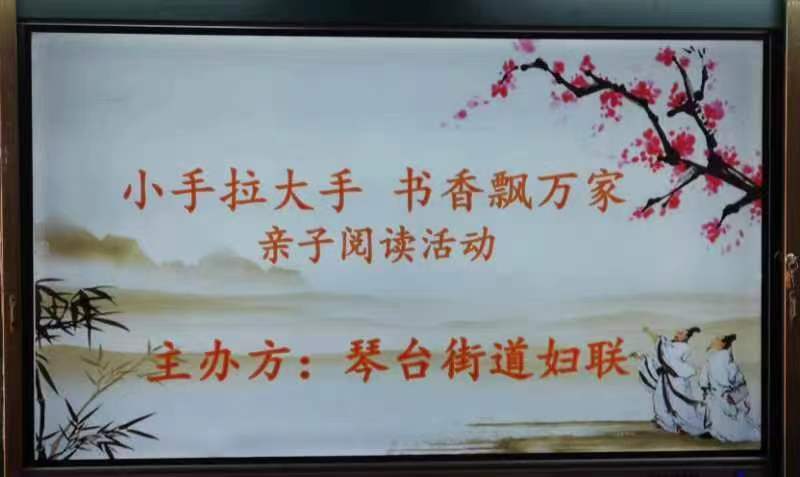 小手拉大手 书香飘万家
亲子阅读活动
主办方：琴台街道妇联